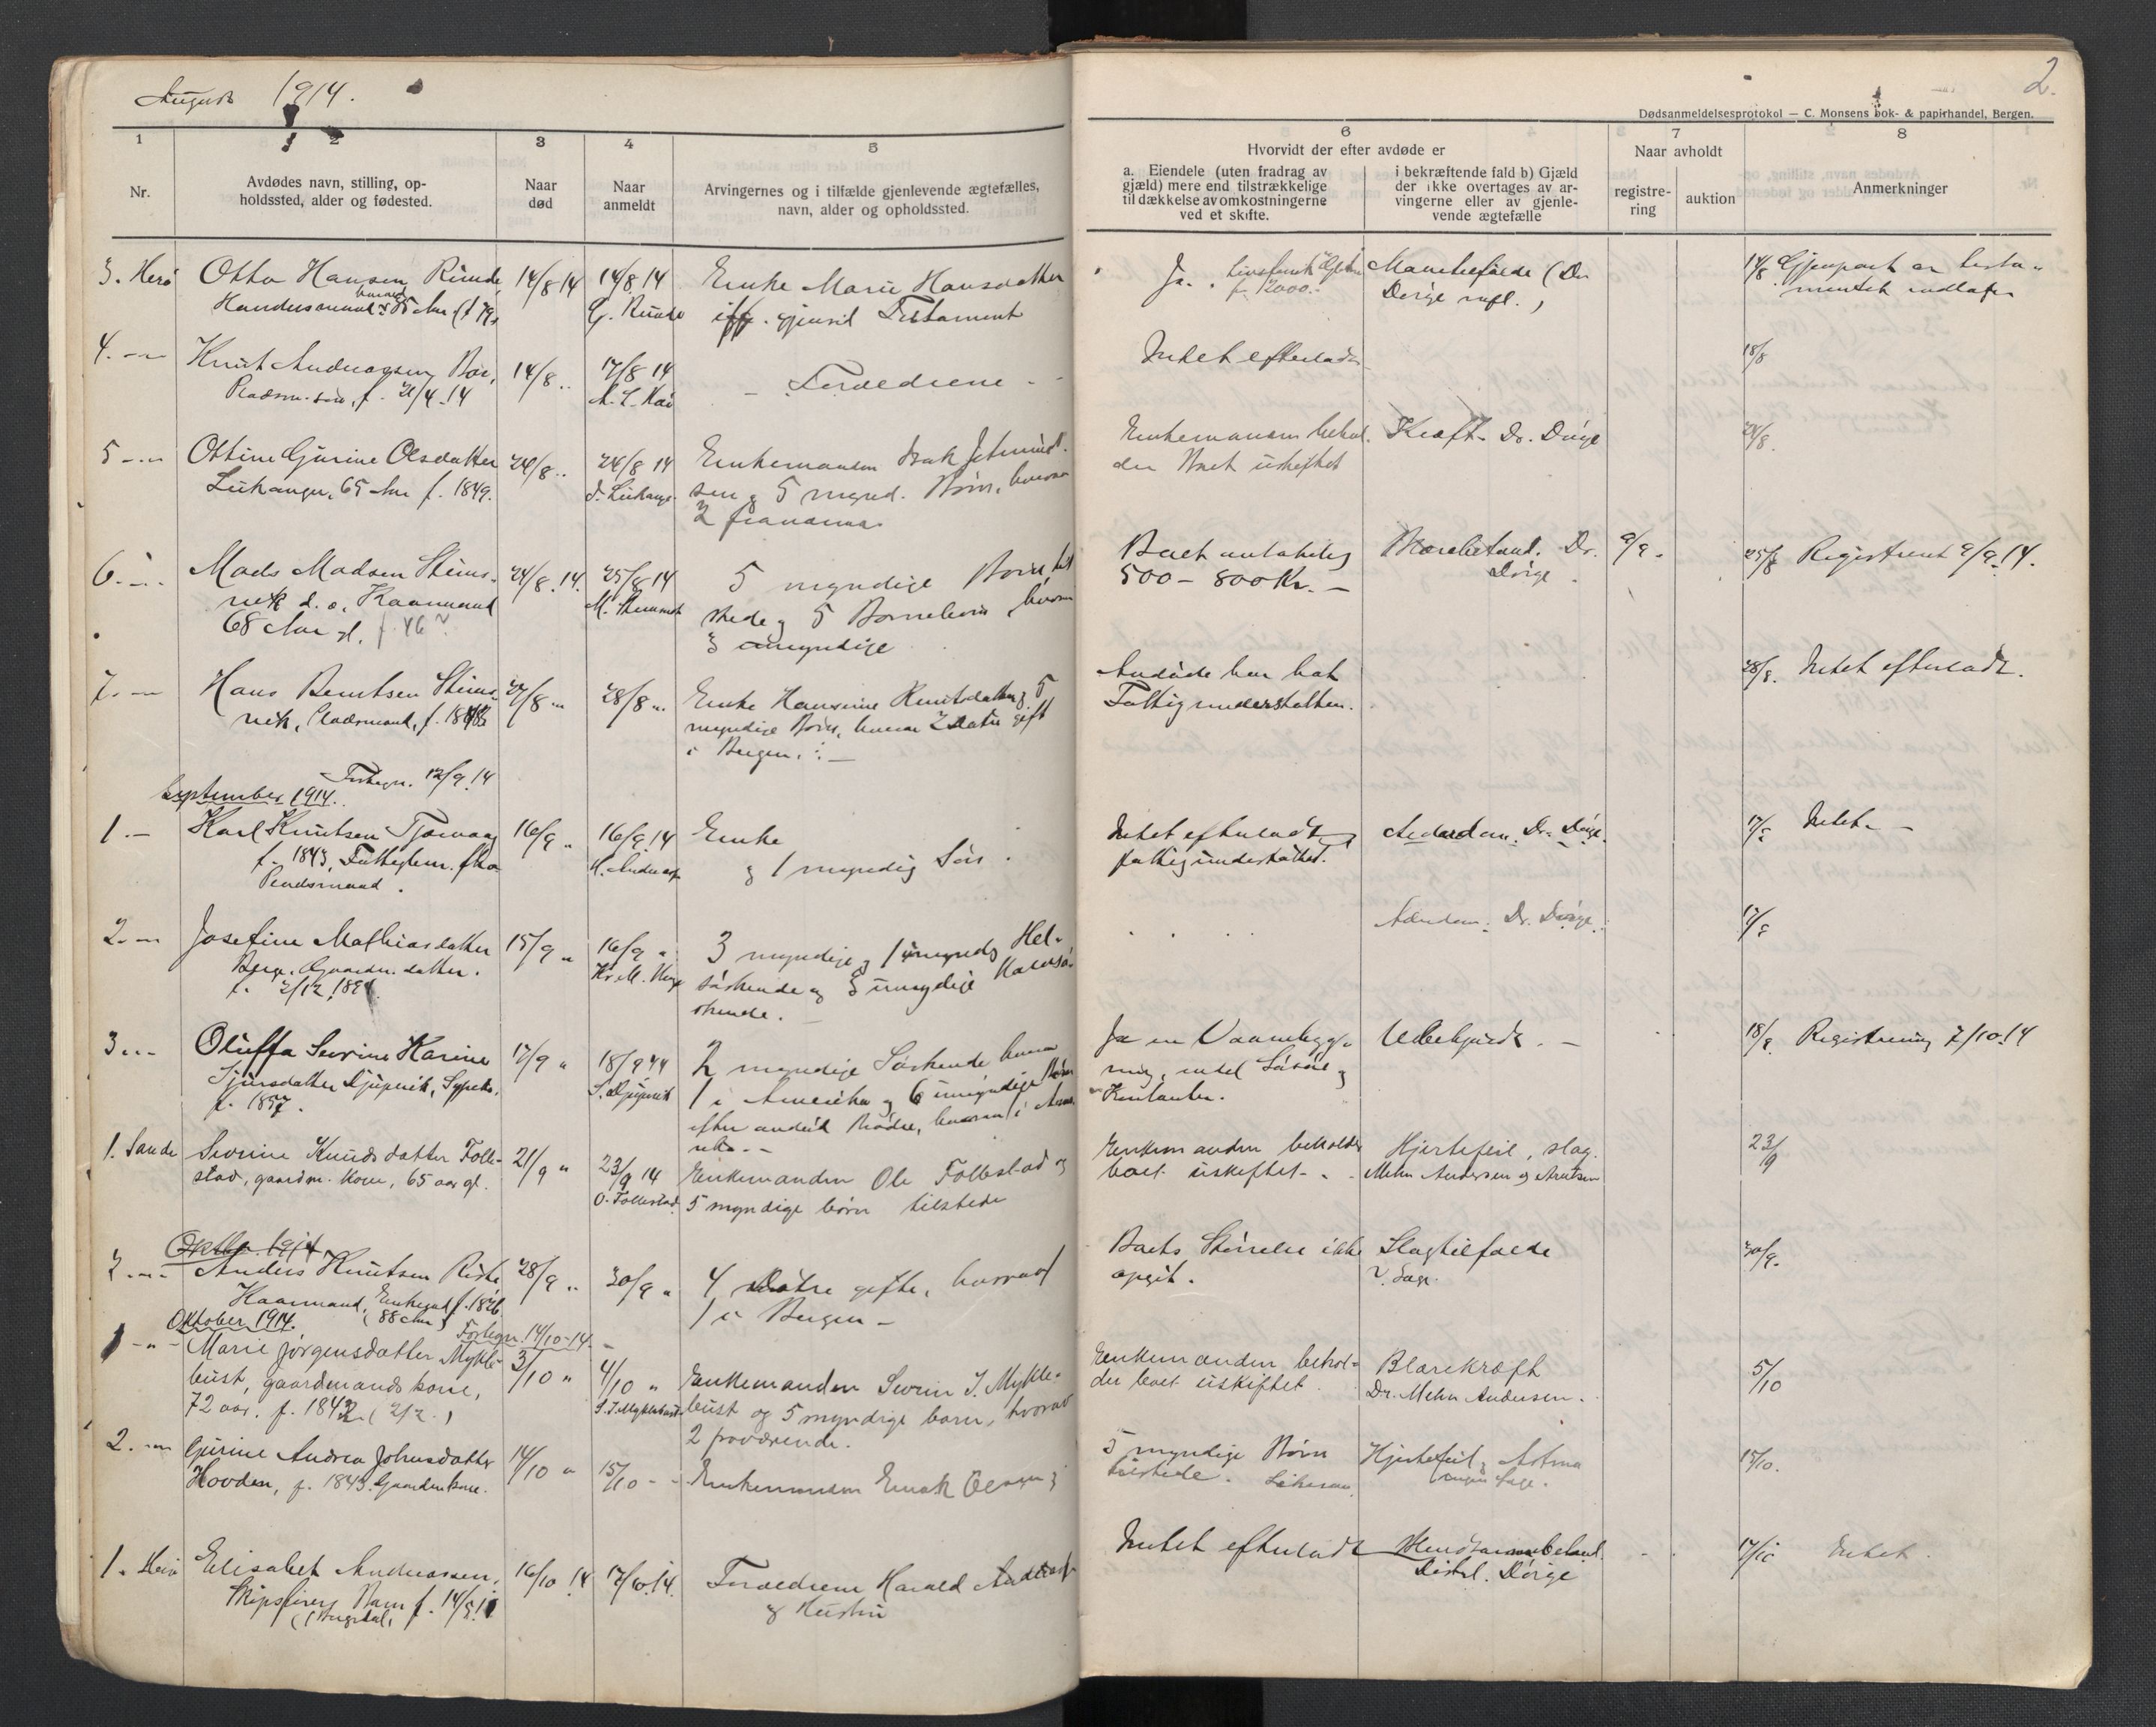 August 1914.
2.
Dødsanmeldelsesprotokol — C. Monsens bok- & papirhandel, Bergen.
1 2 3 4 5 6 7 8
Nr.
Avdødes navn, stilling, op-
holdssted, alder og fødested.
Naar
død
Naar
anmeldt
Arvingernes og i tilfælde gjenlevende ægtefælles,
navn, alder og opholdssted.
Hvorvidt der efter avdøde er
a. Eiendele (uten fradrag av
gjæld) mere end tilstrækkelige
til dækkelse av omkostningerne
ved et skifte.
i bekræftende fald b) Gjæld
der ikke overtages av ar-
vingerne eller av gjenle-
vende ægtefælle
Naar avholdt
registre-
ring
auktion
Anmerkninger
3. Herø Otto Hansen Runde, 14/8 14 14/8 14 Enke Marie Hansdatter
G. Runde iflg. gjensid. Testament
Ja.
f. 2000.-
Mavekræft (Dr
Dørge
14/8 Gjenpart av testa-
mentet indlagt
4. -"- Knut Andreassen
Pladsm. søn, f. 21/4.14
14/8 " 17/8 14
- Forældrene -
Intet efterladt
18/8
5 -"- Ottine Gurine Olsdatter
Leikanger, 65 Aar f. 1849.
24/8 " 24/8 14
Enkemanden Isak Jetmund-
sen og 5 mynd. Børn, hvorav
2 fraværende
Enkemanden behol-
der Boet uskiftet
Kræft. Dr. Dørge
24/8.
6. -"- Mads Madsen Stems-
68 Aar gl. f. 46?
24/8.14. 25/8 14
5 myndige Børn, til
stede og 5 Børnebørn, hvorav
3 umyndige
Boet antakelig
500 - 800 Kr. -
Dr.
Dørge
9/9.
25/8 Registrert 9/9.14.
7. -"- Hans Berntsen Stems-
27/8 " 28/8 "
Enke Hansine Knutsdatter og 5
myndige Børn, hvorav 2 Døtre gift
i Bergen. -
Avdøde har hat
Fattigunderstøttelse.
28/8. Intet efterladt.
Fortegn. 12/9.14
September 1914.
1. - Karl Knutsen Tjørvaag
f. 1843, Fattiglem. fhv
Pladsmand.
16/9 " 16/9 14
Enke
og 1 myndig Søn.
Intet efterladt
fattigunderstøttet.
Alderdom. Dr. Dørge.
17/9 Intet. -
2. -"- Josefine Mathiasdatter
Berge. Gaardm. datter.
15/9 " 16/9 "
3 myndige og 1 umyndig Hel-
søskende og 3 umyndige Halvsø-
skende. -
Dr. Dørge.
17/9
3 -"- Oluffa Severine Karine
Sjursdatter Djupvik, Sypike.
f. 1857.
17/9 " 18/9 14
S. Djupvik
2 myndige Søskende hvorav
1 i Amerika og 6 umyndige Børn
efter avdød Broder, hvorav 1 i Ame-
rika. -
Ja en Vaaningbyg-
ning, endel Løsøre og
Kontanter.
Ubekjendt. -
18/9 Registrering 7/10.14
1. Sande Severine Knudsdatter Folle-
stad, gaardm. kone, 65 aar gl.
21/9 " 23/9 14
O. Follestad
Enkemanden Ole Follestad og
5 myndige børn tilstede
Enkemanden beholder
boet uskiftet. -
Hjertefeil, slag.
Mehn Andersen og Arentsen
23/9
Oktbr. 1914.
2 -"- Anders Knutsen Riste
Kaarmand, Enkemd f. 1826
(88 Aar)
28/9 " 30/9 "
4 Døtre gifte, hvorav
1 i Bergen -
Boets Størrelse ikke
opgit.
Slagtilfælde
30/9.
Oktober 1914.
Fortegn. 14/10-14. -
1 -"- Marie Jørgensdatter Mykle-
bust, gaardmands kone,
72 aar. f. 1842 (2/2.)
3/10 " 4/10 "
S. J. Myklebust
Enkemanden Severin J. Mykle-
bust og 5 myndige barn, hvorav
2 fraværende.
Enkemanden behol-
der boet uskiftet.
Blærekræft
Dr. Mehn Andersen.
5/10
2. -"- Gurine Andrea Johnsdatter
Hovden, f. 1843. Gaardm kone.
14/10 " 15/10 - -
Enkemanden
5 myndige Børn
tilstede.
Hjertefeil og Astma
ingen Læge.
15/10.
1. Herø Elisabet Andreassen,
Skipsførers Barn f. 14/5.11
16/10 14 17/10.14.
Forældrene Harald Andreassen
og Hustru
Intet efterladt
Distrl. Dørge
17/10 Intet.